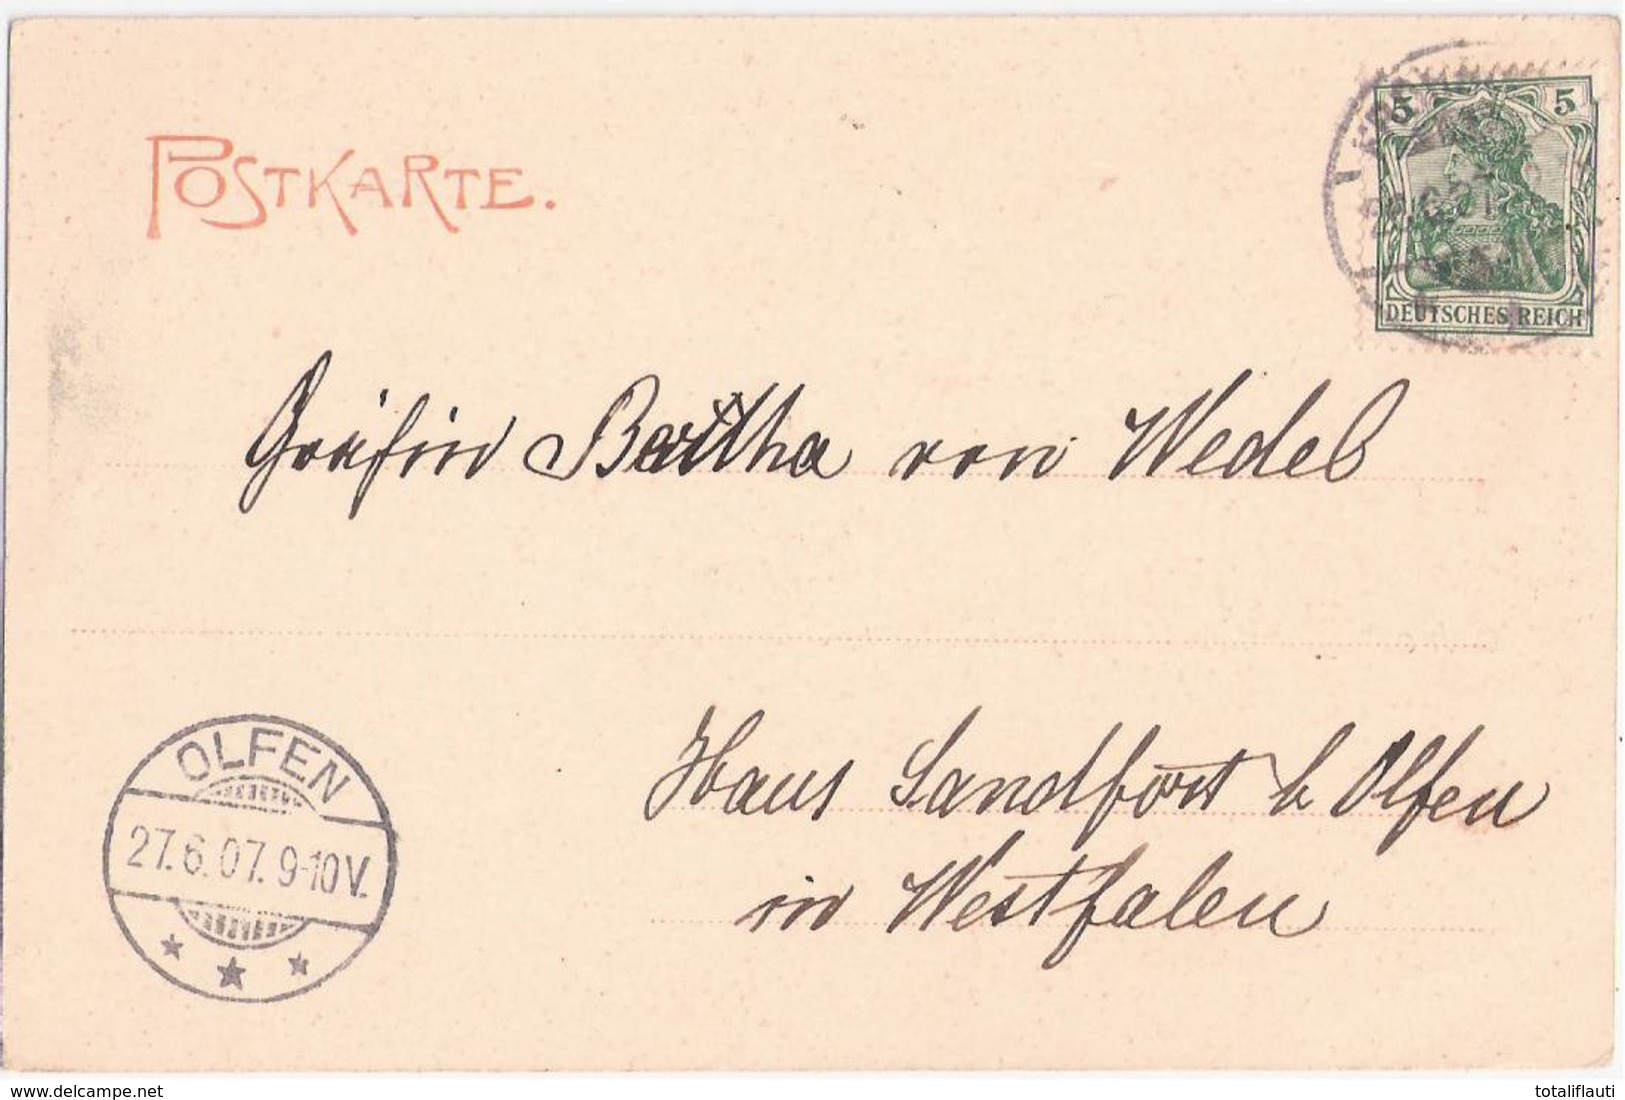 POSTKARTE.
5 5
DEUTSCHES REICH
Gräfin Bertha von Wedel
OLFEN
27.6.07. 9-10V.
Haus Sandfort b Olfen
in Westfalen
www.delcampe.net
totaliflauti